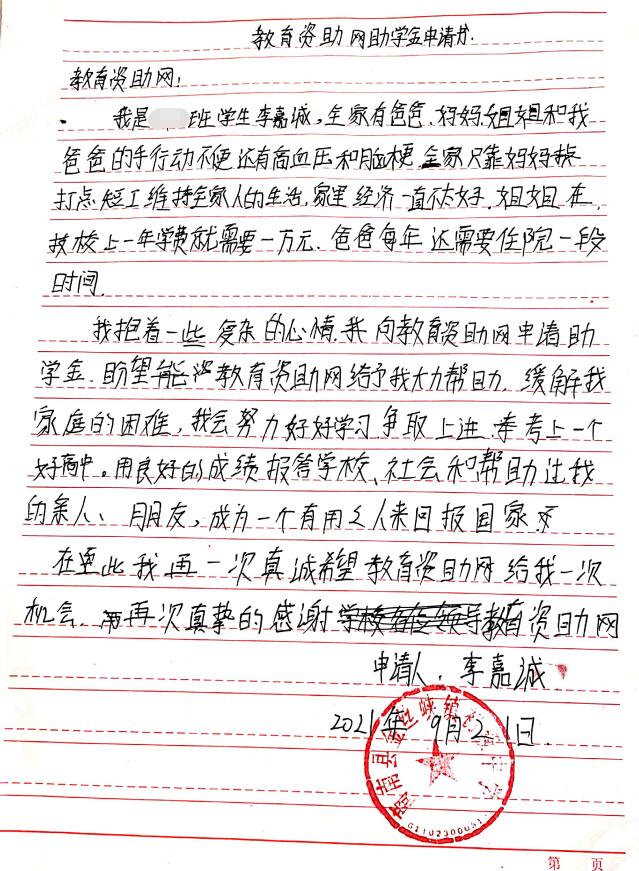 教育资助网助学金申请书
教育资助网:
我是 班学生李嘉诚。全家有爸爸、妈妈、姐姐和我
爸爸的手行动不便还有高血压和脑梗,全家只靠妈妈
打点短工维持全家人的生活,家里经济一直不太好,姐姐在
技校上一年学费就需要一万元.爸爸每年还需要住院一段
时间.
我抱着一些复杂的心情,我向教育资助网申请助
学金.盼望能 教育资助网给予我大力帮助,缓解我
家庭的困难,我会努力好好学习争取上进, 考上一个
好高中。用良好的成绩报答学校、社会和帮助过我
的亲人、朋友,成为一个有用之人来回报国家
在 此我再一次真诚希望教育资助网给我一次
机会. 再次真挚的感谢 教育资助网
申请人.李嘉诚
2021年9月21日.
第 页